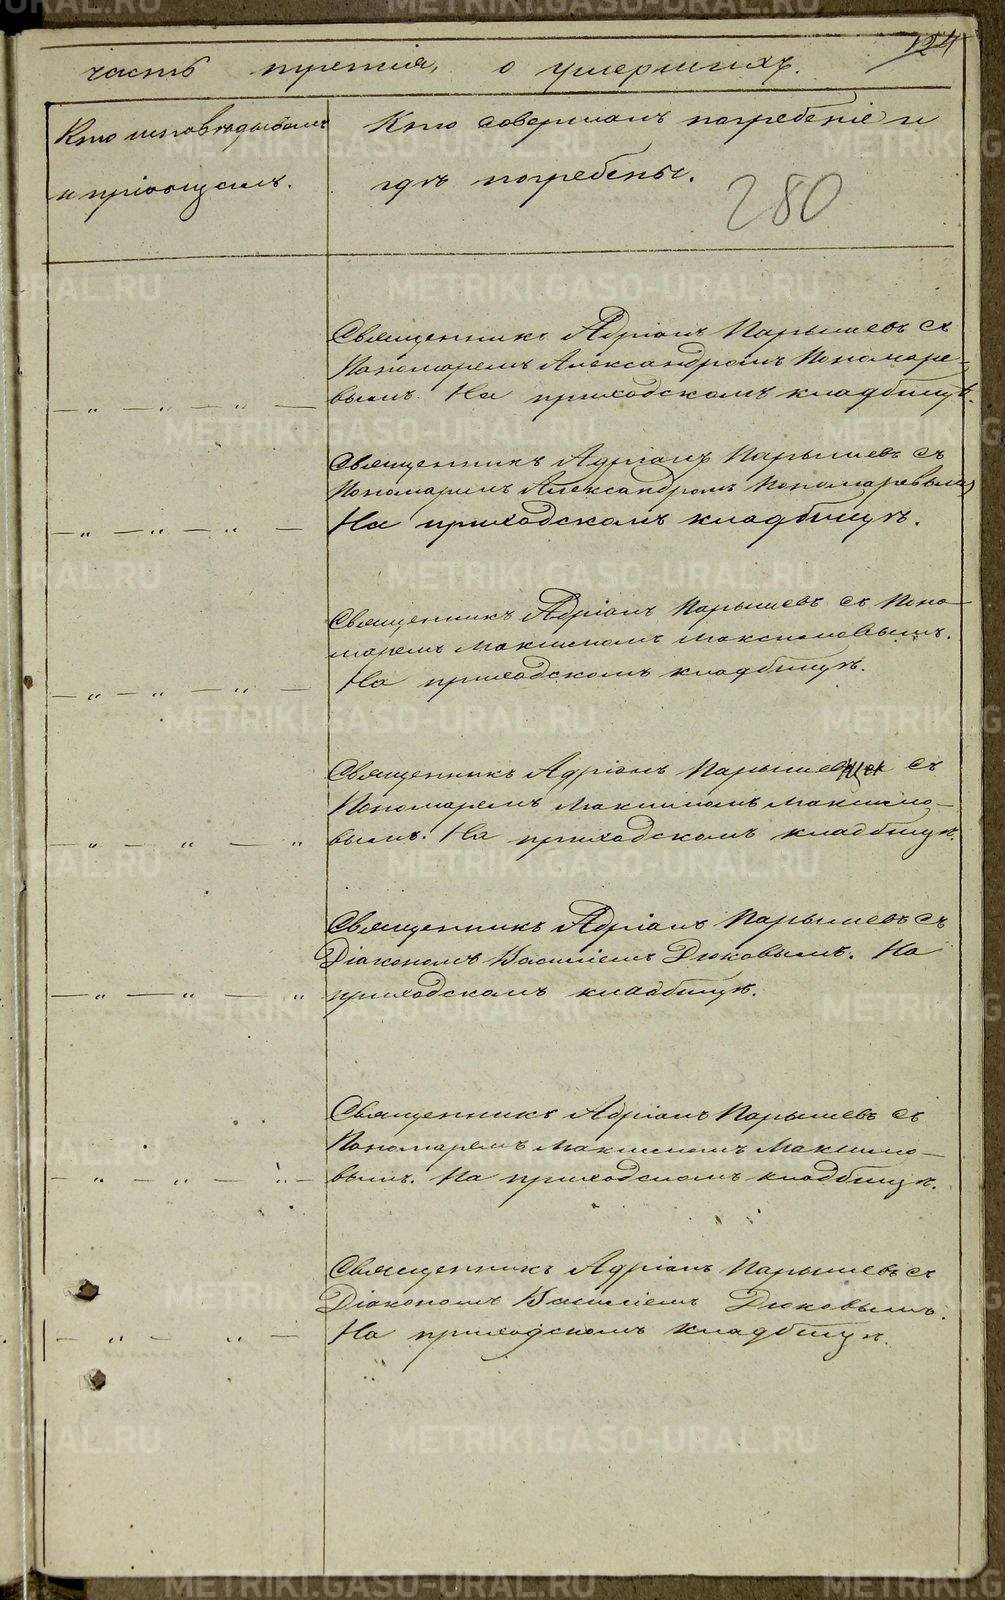 124
часть третія, о умершихъ.
Кто исповѣдывалъ
и пріобщалъ.
Кто совершалъ погребеніе и
гдѣ погребены.
280
Священникъ Адріанъ Парышевъ съ
Пономаремъ Александромъ Пономаре-
вымъ. На приходскомъ кладбищѣ.
— „ — „ — „ —
Священникъ Адріанъ Парышевъ съ
Пономаремъ Александромъ Пономаревымъ
На приходскомъ кладбищѣ.
— „ — „ — „ —
Священникъ Адріанъ Парышевъ съ Поно-
маремъ Максимомъ Максимовымъ.
На приходскомъ кладбищѣ.
— „ — „ — „ —
Священникъ Адріанъ Парышевъ съ
Пономаремъ Максимомъ Максимо-
вымъ. На приходскомъ кладбищѣ.
— „ — „ — „
Священникъ Адріанъ Парышевъ съ
Діакономъ Василіемъ Дюковымъ. На
приходскомъ кладбищѣ.
— „ — „ — „
Священникъ Адріанъ Парышевъ съ
Пономаремъ Максимомъ Максимо-
вымъ. На приходскомъ кладбищѣ.
— „ — „ — „ —
Священникъ Адріанъ Парышевъ съ
Діакономъ Василіемъ Дюковымъ.
На приходскомъ кладбищѣ.
— „ — „ —
METRIKI.GASO-URAL.RU